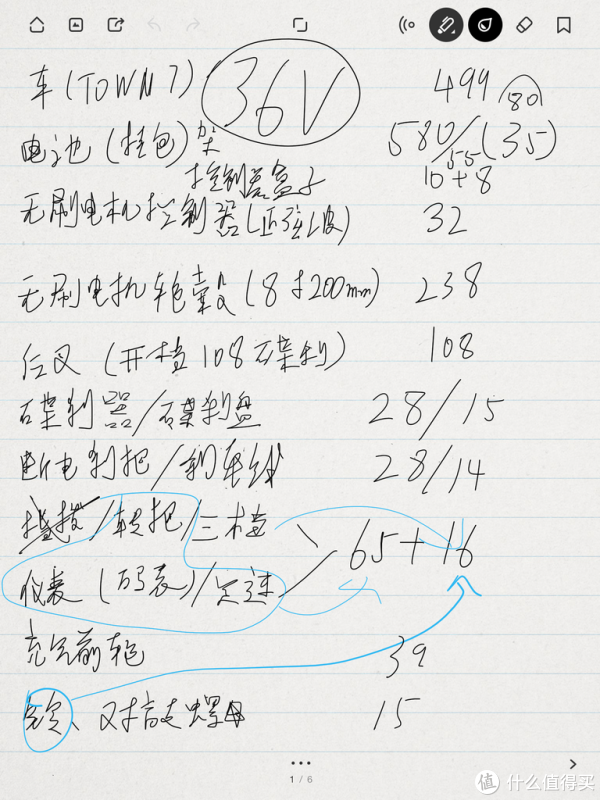 36V
车(TOWN7) 499 80
电池(挂包)架 580/55(35)
控制器盒子 10+8
无刷电机控制器(正弦波) 32
无刷电机轮毂(8寸200mm) 238
后叉(开档108碟刹) 108
碟刹器/碟刹盘 28/15
断电刹把/刹车线 28/14
/转把/三档
65+16
仪表(码表)/定速
充气前轮 39
、对锁螺母 15
1/6
值 什么值得买